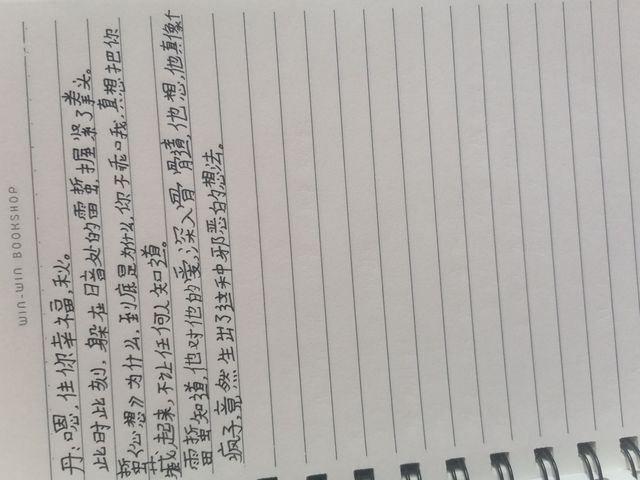 WIN-WIN BOOKSHOP
丹:嗯,住你幸福,秋。
此时此刻,躲在暗处的雷蛰握紧了拳头。
蛰《心想》为什么,到底是为什么,你不乖哦,真想把你
藏起来,不让任何人知道。
雷蛰知道,他对他的爱,深入骨骨遀,他想,他真像个
疯子,竟然生出了这种邪恶的想法。